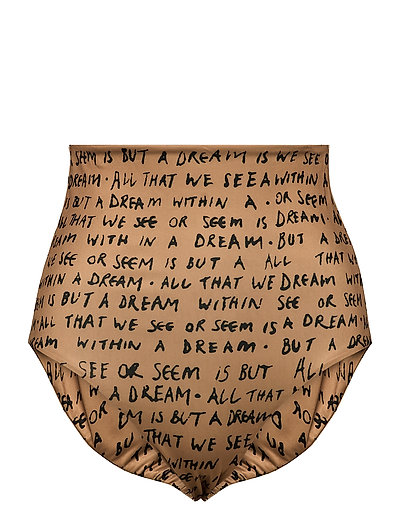 SEEM IS BUT A DREAM IS WE SEE
SEEM · ALL THAT WE SEE A WITHIN A
BUT A DREAM WITHIN A · OR SEE
ALL THAT WE SEE OR SEEM IS DREAM ·
DREAM WITH IN A DREAM · BUT A
WE SEE OR SEEM IS BUT A ALL THAT WE
WITHIN A DREAM · ALL THAT WE DREAM WITH
SEEM IS BUT A DREAM WITHIN SEE OR SEEM
ALL THAT WE SEE OR SEEM IS A DREAM ·
DREAM WITHIN A DREAM · BUT A DREAM
SEE OR SEEM IS BUT
A DREAM · ALL THAT
IS BUT A DREAM
THAT WE SEE
WITHIN A